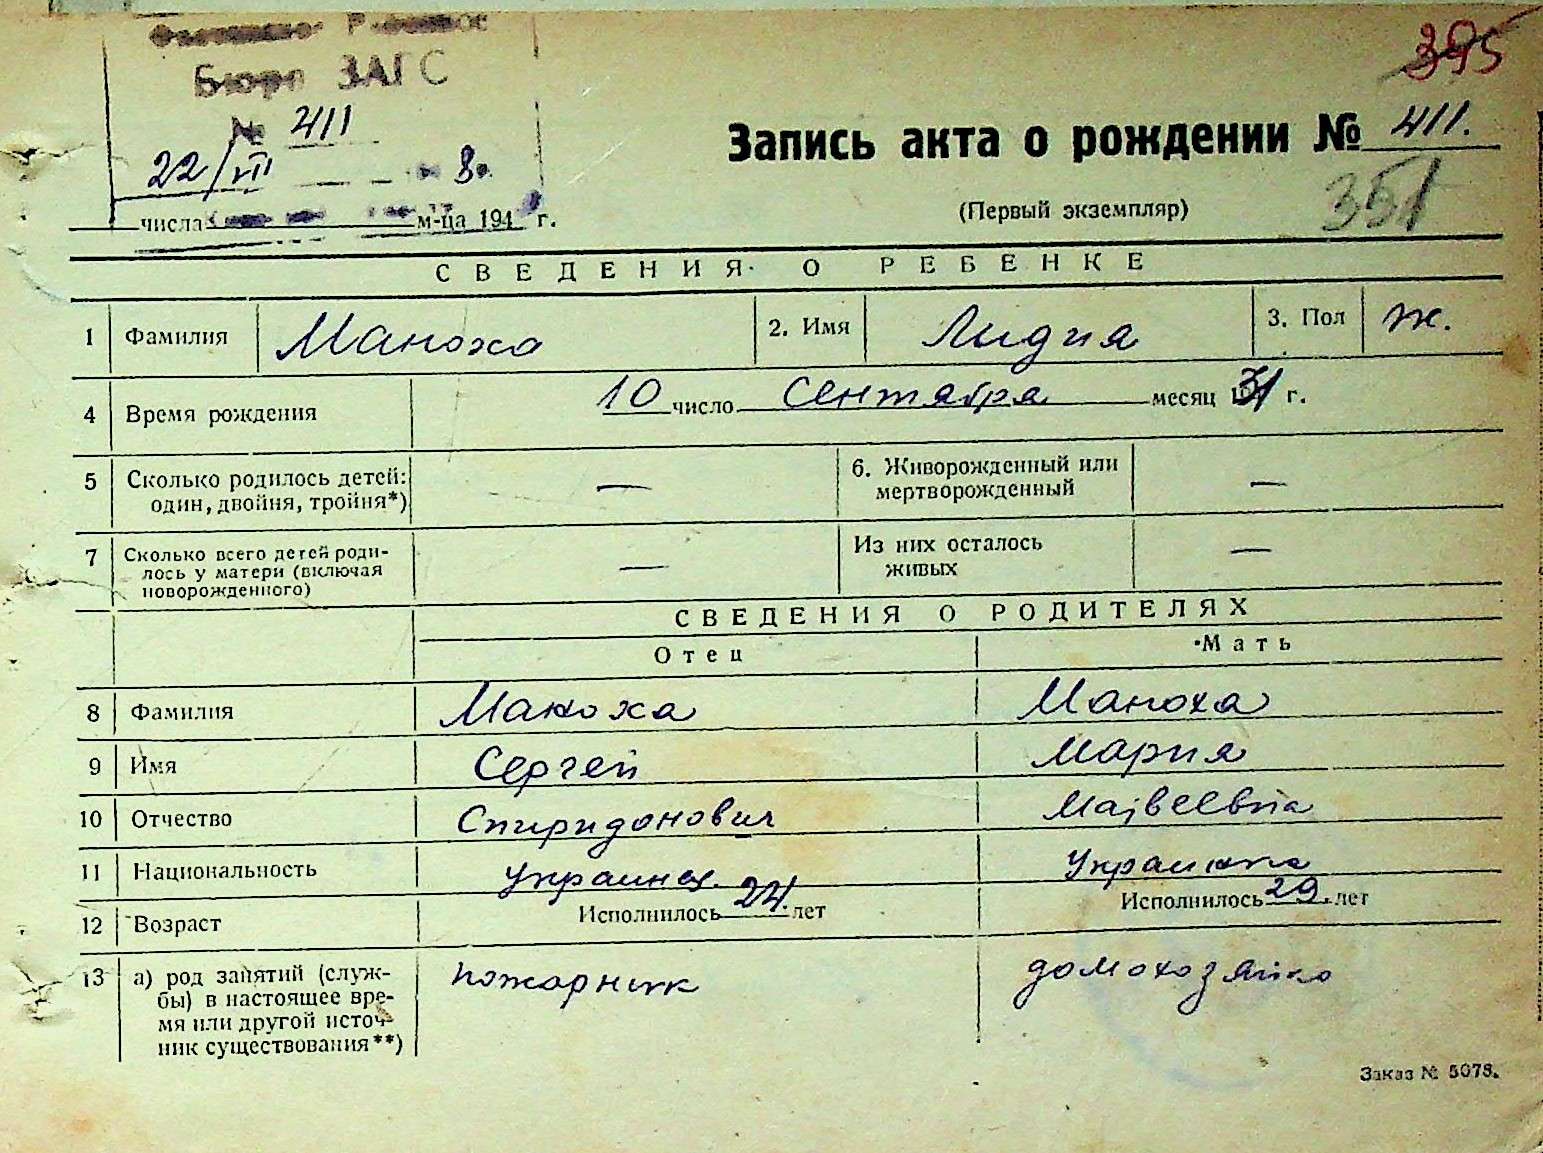 395
Бюро ЗАГС
№ 411
22/VII 8.
числа м-ца 194 г.
Запись акта о рождении № 411.
(Первый экземпляр)
351
СВЕДЕНИЯ О РЕБЕНКЕ
1 Фамилия Маноха 2. Имя Лидия 3. Пол ж.
4 Время рождения 10 число Сентября месяц 1931 г.
5 Сколько родилось детей: один, двойня, тройня*) — 6. Живорожденный или мертворожденный —
7 Сколько всего детей родилось у матери (включая новорожденного) — Из них осталось живых —
СВЕДЕНИЯ О РОДИТЕЛЯХ
Отец Мать
8 Фамилия Маноха Маноха
9 Имя Сергей Мария
10 Отчество Спиридонович Матвеевна
11 Национальность украинец. Украинка
12 Возраст Исполнилось 24. лет Исполнилось 29. лет
13 а) род занятий (служ-
бы) в настоящее вре-
мя или другой источ-
ник существования**)
пожарник домохозяйка
Заказ № 5078.